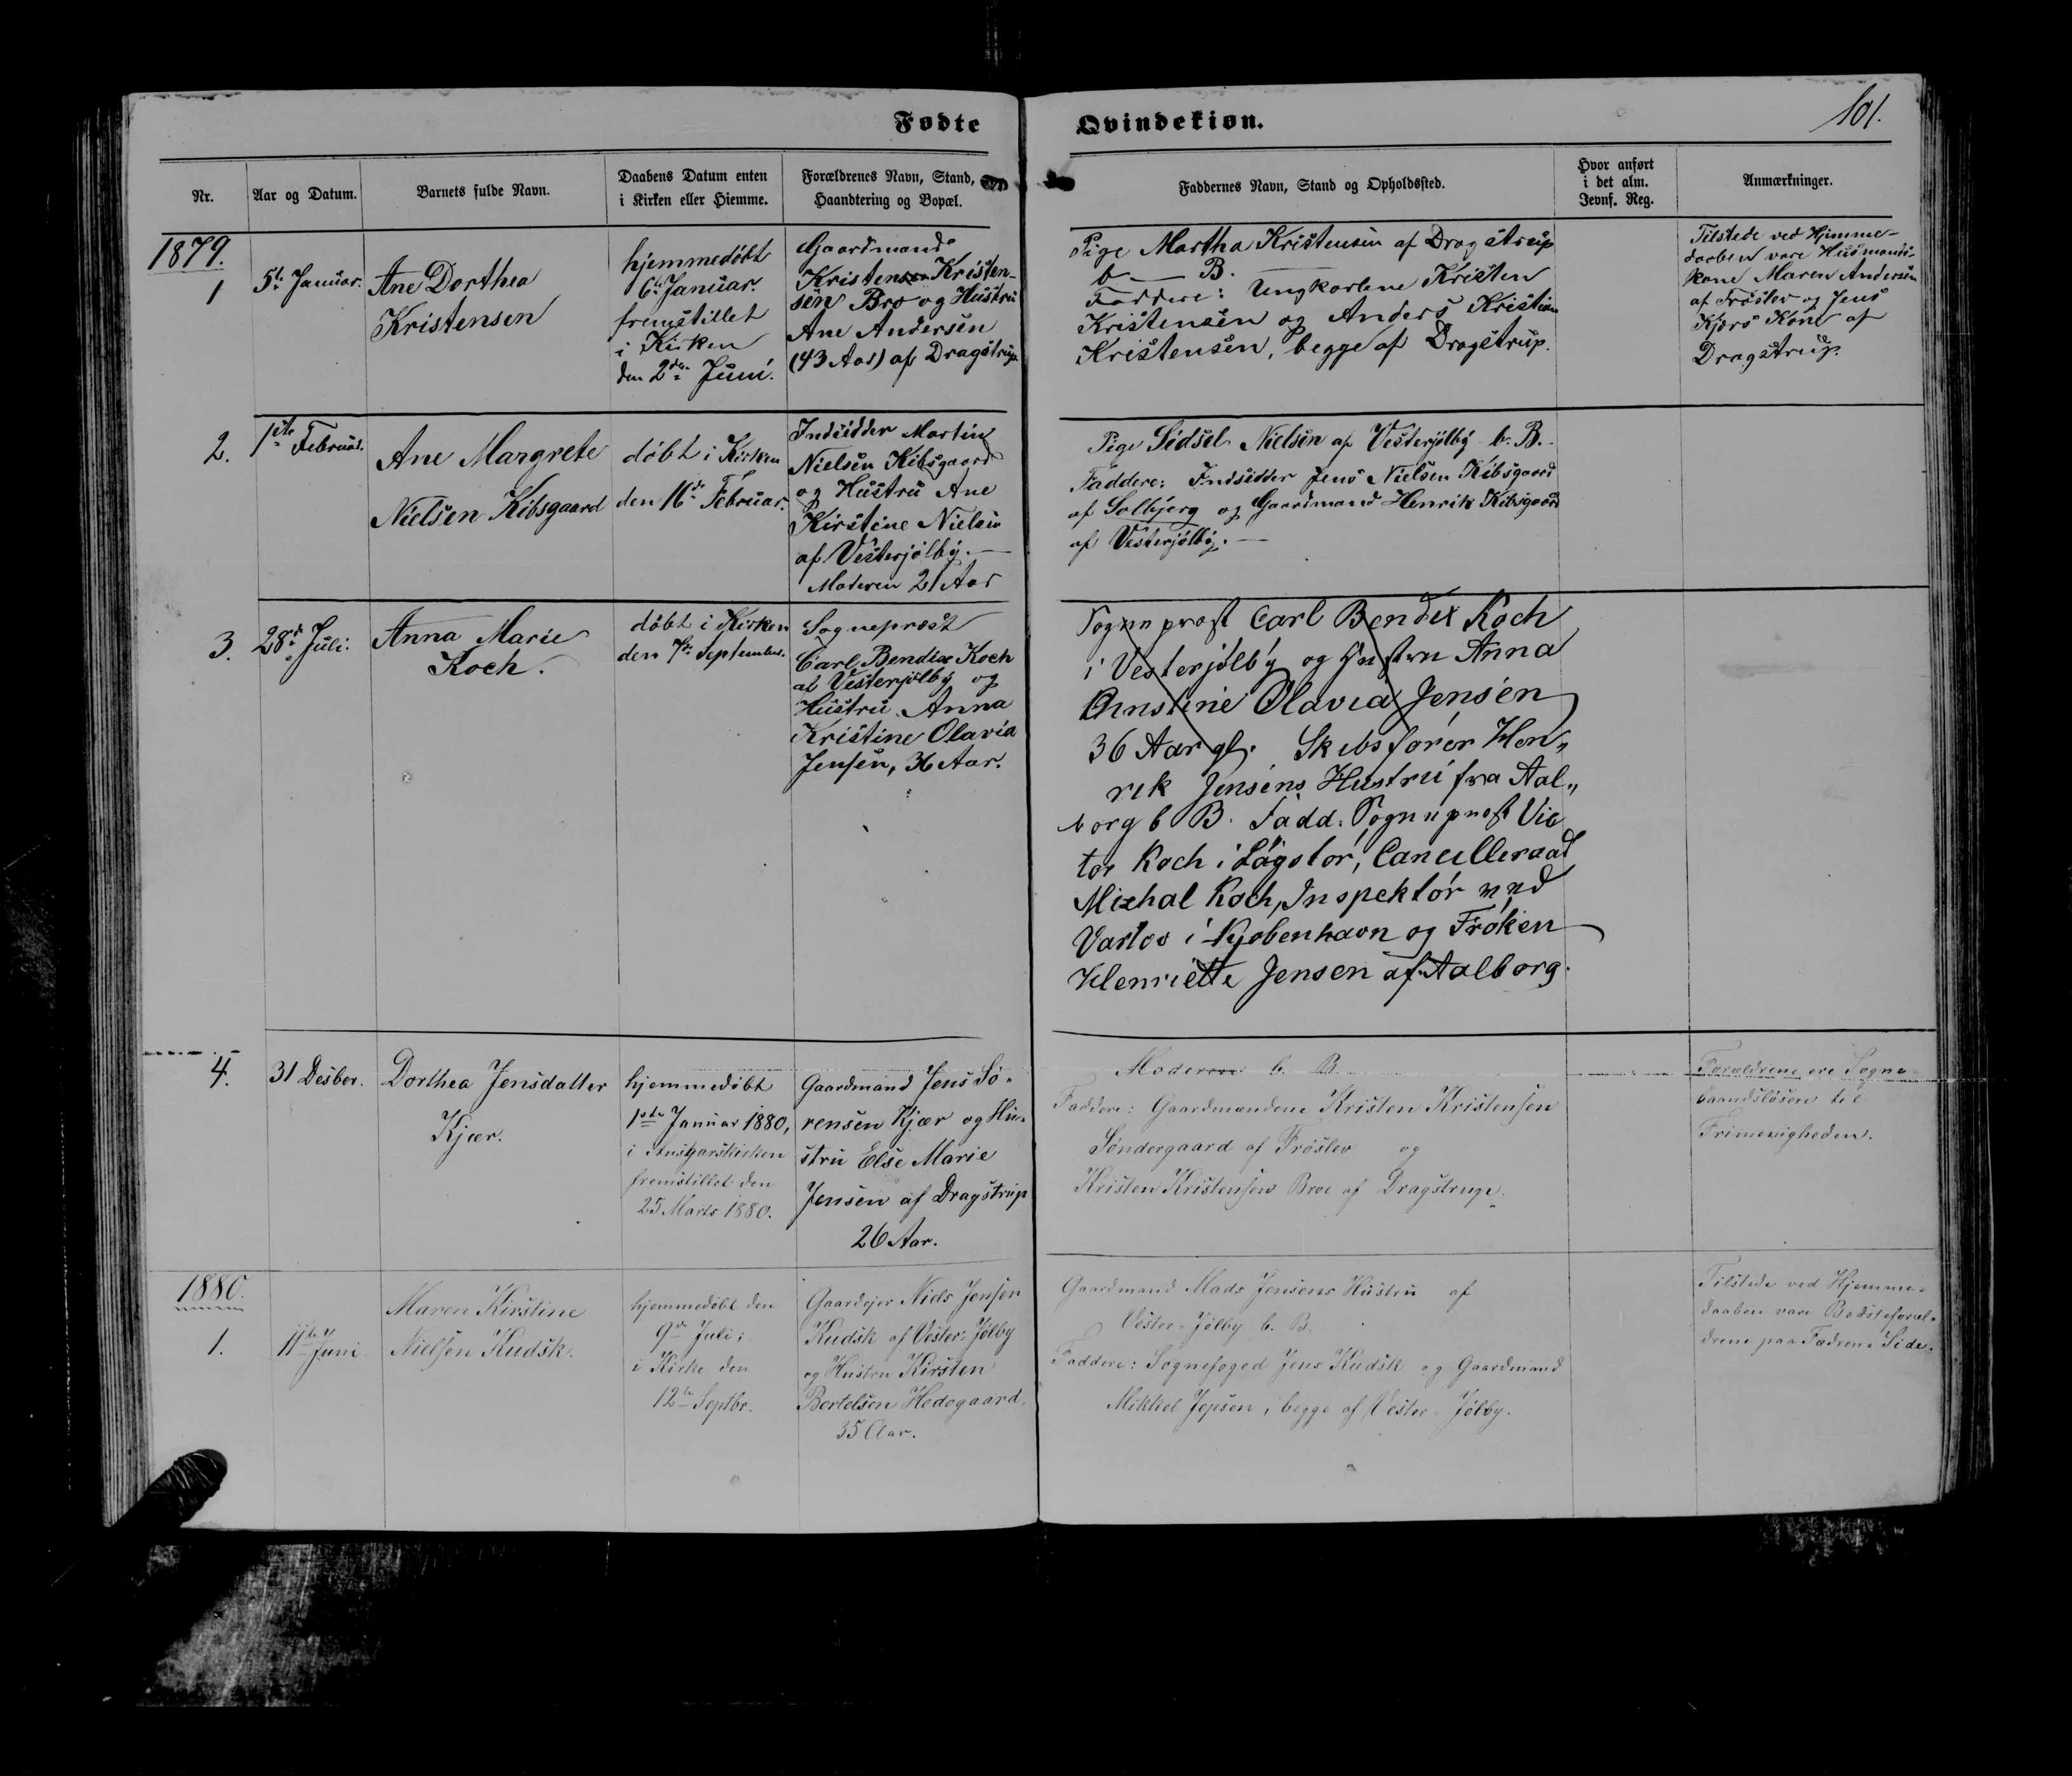 Fødte
Qvindekiøn.
101.
Nr.
Aar og Datum.
Barnets fulde Navn.
Daabens Datum enten
i Kirken eller Hiemme.
Forældrenes Navn, Stand,
Haandtering og Bopæl.
Faddernes Navn, Stand og Opholdssted.
Hvor anført
i det alm.
Jevnf. Reg.
Anmærkninger.
1879.
1
5te Januar.
Ane Dorthea
Kristensen
hjemmedøbt
6te Januar
fremstillet
i Kirken
den 2den Juni.
Gaardmand
Kristen Kristen-
sen Bro og Hustru
Ane Andersen
(43 Aar) af Dragstrup
Pige Martha Kristensen af Dragstrup
b — B.
Faddere: Ungkarlene Kristen
Kristensen og Anders Kristian
Kristensen, begge af Dragstrup.
Tilstede ved Hjemme-
daaben vare Husmands-
kone Maren Andersen
af Frøslev og Jens
Kjærs Kone af
Dragstrup.
2.
1ste Februar.
Ane Margrete
Nielsen Kibsgaard
døbt i Kirken
den 16de Februar.
Indsidder Martin
Nielsen Kibsgaard
og Hustru Ane
Kirstine Nielsen
af Vesterjølby. —
Moderen 21 Aar
Pige Sidsel Nielsen af Vesterjølby b. B.
Faddere: Indsidder Jens Nielsen Kibsgaard
af Solbjerg og Gaardmand Henrik Kibsgaard
af Vesterjølby. —
3.
28de Juli.
Anna Marie
Koch.
døbt i Kirken
den 7de September.
Sognepræst
Carl Bendix Koch
at Vesterjølby og
Hustru Anna
Kristine Olavia
Jensen, 36 Aar.
Sognepræst Carl Bendix Koch
i Vesterjølby og Hustru Anna
Christine Olavia Jensen
36 Aar gl. Skibsfører Hen„
rik Jensens Hustru fra Aal„
borg b B. Fadd: Sognepræst Vic
tor Koch i Løgstør, Cancelleraad
Michal Koch, Inspektør ved
Vartov i Kjøbenhavn og Frøken
Henriette Jensen af Aalborg.
4.
31 Desber.
Dorthea Jensdatter
Kjær.
hjemmedøbt
1ste Januar 1880,
i Ansgarskirken
fremstillet den
25 Marts 1880.
Gaardmand Jens Sø-
rensen Kjær og Hu-
stru Else Marie
Jensen af Dragstrup
26 Aar.
Moderen b. B.
Faddere: Gaardmændene Kristen Kristensen
Søndergaard af Frøslev og
Kristen Kristensen Broe af Dragstrup.
Forældrene ere Sogne-
baandsløsere til
Frimenigheden.
1880.
1.
11te Juni
Maren Kirstine
Nielsen Kudsk.
hjemmedøbt den
9de Juli;
i Kirke den
12te Septbr.
Gaardejer Niels Jensen
Kudsk af Vester-Jølby
og Hustru Kirsten
Bertelsen Hedegaard.
35 Aar.
Gaardmand Mads Jensens Hustru af
Vester-Jølby b. B.
Faddere: Sognefoged Jens Kudsk og Gaardmand
Mikkel Jepsen, begge af Vester-Jølby.
Tilstede ved Hjemme-
daaben vare Bedsteforæl-
drene paa Fædrene Side.